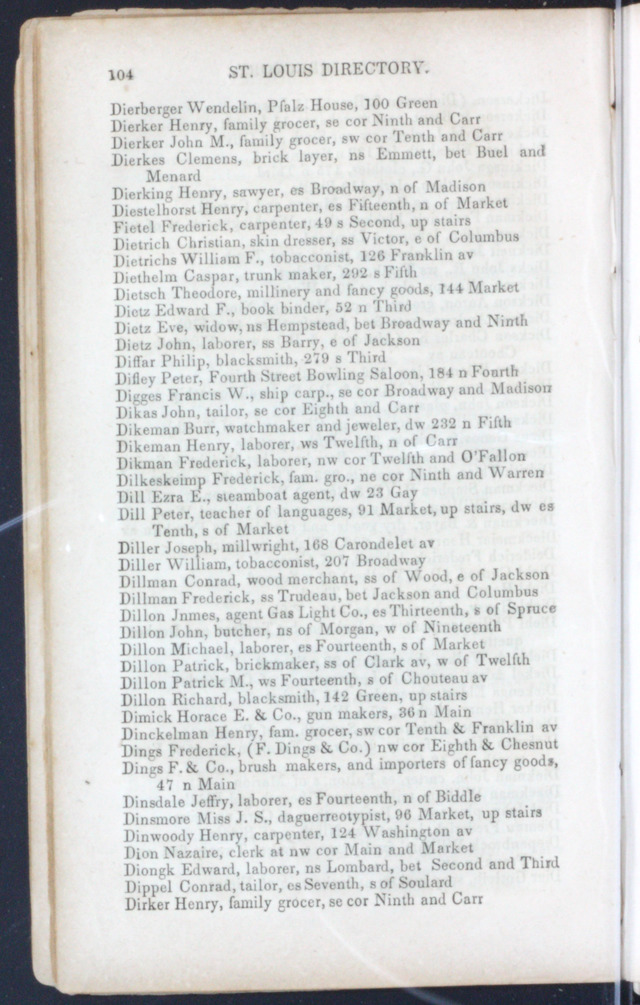 104 ST. LOUIS DIRECTORY.
Dierberger Wendelin, Pfalz House, 100 Green
Dierker Henry, family grocer, se cor Ninth and Carr
Dierker John M., family grocer, sw cor Tenth and Carr
Dierkes Clemens, brick layer, ns Emmett, bet Buel and
Menard
Dierking Henry, sawyer, es Broadway, n of Madison
Diestelhorst Henry, carpenter, es Fifteenth, n of Market
Fietel Frederick, carpenter, 49 s Second, up stairs
Dietrich Christian, skin dresser, ss Victor, e of Columbus
Dietrichs William F., tobacconist, 126 Franklin av
Diethelm Caspar, trunk maker, 292 s Fifth
Dietsch Theodore, millinery and fancy goods, 144 Market
Dietz Edward F., book binder, 52 n Third
Dietz Eve, widow, ns Hempstead, bet Broadway and Ninth
Dietz John, laborer, ss Barry, e of Jackson
Diffar Philip, blacksmith, 279 s Third
Difley Peter, Fourth Street Bowling Saloon, 184 n Fourth
Digges Francis W., ship carp., se cor Broadway and Madison
Dikas John, tailor, se cor Eighth and Carr
Dikeman Burr, watchmaker and jeweler, dw 232 n Fifth
Dikeman Henry, laborer, ws Twelfth, n of Carr
Dikman Frederick, laborer, nw cor Twelfth and O'Fallon
Dilkeskeimp Frederick, fam. gro., ne cor Ninth and Warren
Dill Ezra E., steamboat agent, dw 23 Gay
Dill Peter, teacher of languages, 91 Market, up stairs, dw es
Tenth, s of Market
Diller Joseph, millwright, 168 Carondelet av
Diller William, tobacconist, 207 Broadway
Dillman Conrad, wood merchant, ss of Wood, e of Jackson
Dillman Frederick, ss Trudeau, bet Jackson and Columbus
Dillon Jnmes, agent Gas Light Co., es Thirteenth, s of Spruce
Dillon John, butcher, ns of Morgan, w of Nineteenth
Dillon Michael, laborer, es Fourteenth, s of Market
Dillon Patrick, brickmaker, ss of Clark av, w of Twelfth
Dillon Patrick M., ws Fourteenth, s of Chouteau av
Dillon Richard, blacksmith, 142 Green, up stairs
Dimick Horace E. & Co., gun makers, 36 n Main
Dinckelman Henry, fam. grocer, sw cor Tenth & Franklin av
Dings Frederick, (F. Dings & Co.) nw cor Eighth & Chesnut
Dings F. & Co., brush makers, and importers of fancy goods,
47 n Main
Dinsdale Jeffry, laborer, es Fourteenth, n of Biddle
Dinsmore Miss J. S., daguerreotypist, 96 Market, up stairs
Dinwoody Henry, carpenter, 124 Washington av
Dion Nazaire, clerk at nw cor Main and Market
Diongk Edward, laborer, ns Lombard, bet Second and Third
Dippel Conrad, tailor, es Seventh, s of Soulard
Dirker Henry, family grocer, se cor Ninth and Carr